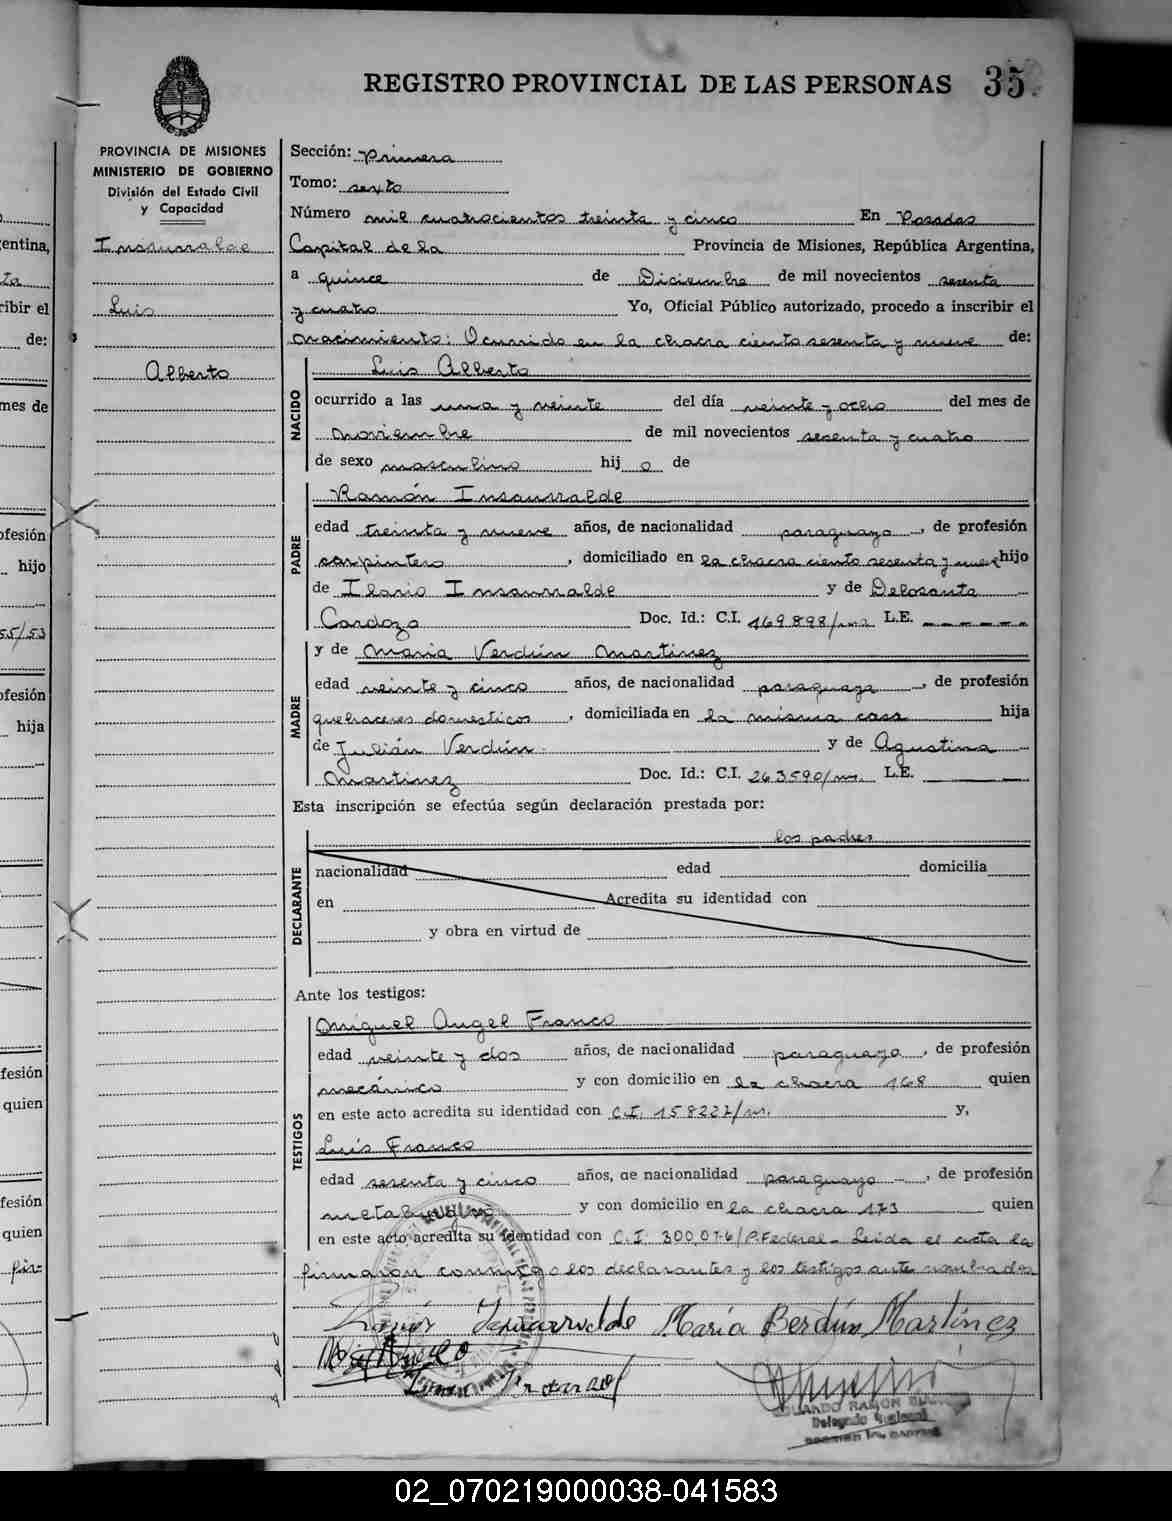 REGISTRO PROVINCIAL DE LAS PERSONAS 35
PROVINCIA DE MISIONES
MINISTERIO DE GOBIERNO
División del Estado Civil
y Capacidad
Insaurralde
Luis
Alberto
Sección: Primera
Tomo: sexto
Número mil cuatrocientos treinta y cinco En Posadas
Capital de la Provincia de Misiones, República Argentina,
a quince de Diciembre de mil novecientos sesenta
y cuatro Yo, Oficial Público autorizado, procedo a inscribir el
nacimiento: Ocurrido en la chacra ciento sesenta y nueve de:
NACIDO
Luis Alberto
ocurrido a las una y veinte del día veinte y ocho del mes de
noviembre de mil novecientos sesenta y cuatro
de sexo masculino hijo de
PADRE
Ramón Insaurralde
edad treinta y nueve años, de nacionalidad paraguayo, de profesión
carpintero, domiciliado en la chacra ciento sesenta y nueve hijo
de Ilario Insaurralde y de Delosanta
Cardozo Doc. Id.: C.I. 169898/ms L.E. ------
MADRE
y de Maria Verdún Martinez
edad veinte y cinco años, de nacionalidad paraguaya, de profesión
quehaceres domesticos, domiciliada en la misma casa hija
de Julián Verdún y de Agustina
Martinez Doc. Id.: C.I. 263590/ms. L.E.
Esta inscripción se efectúa según declaración prestada por:
DECLARANTE
los padres
nacionalidad edad domicilia
en Acredita su identidad con
y obra en virtud de
Ante los testigos:
TESTIGOS
Miguel Angel Franco
edad veinte y dos años, de nacionalidad paraguayo, de profesión
mecánico y con domicilio en la chacra 168 quien
en este acto acredita su identidad con C.I. 158227/m. y,
Luis Franco
edad sesenta y cinco años, de nacionalidad paraguayo, de profesión
y con domicilio en la chacra 173 quien
en este acto acredita su identidad con C.I. 300.076/P.Federal- Leida el acta la
firmaron conmigo los declarantes y los testigos ante nombrados
María Berdún Martínez
EDUARDO RAMON
Delegado
entina,
ta
ribir el
de:
mes de
ofesión
hijo
55/53
ofesión
hija
fesión
quien
fesión
quien
02_070219000038-041583